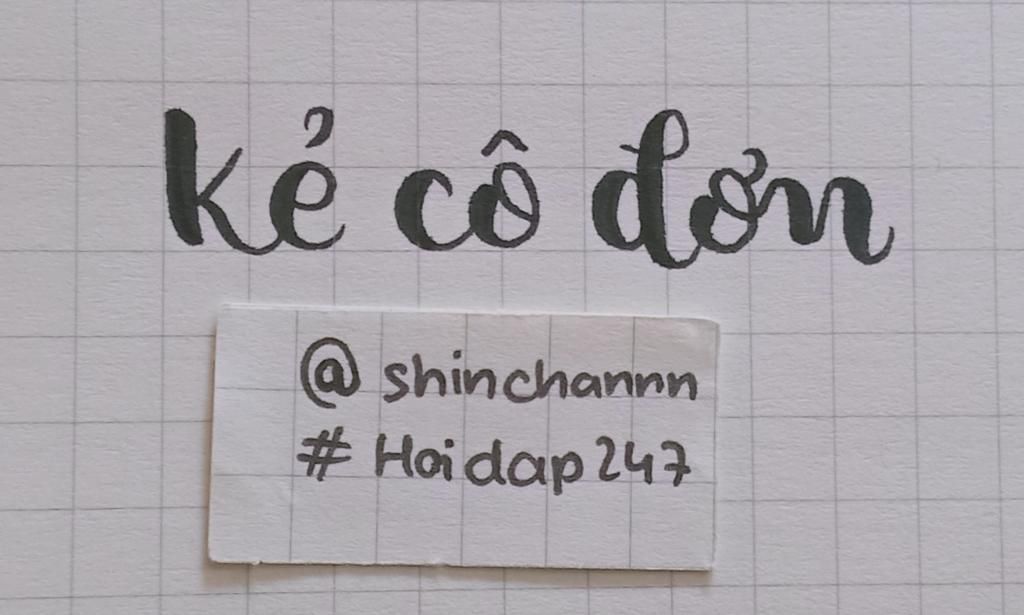 kẻ cô đơn
@ shinchannn
# Hoidap247